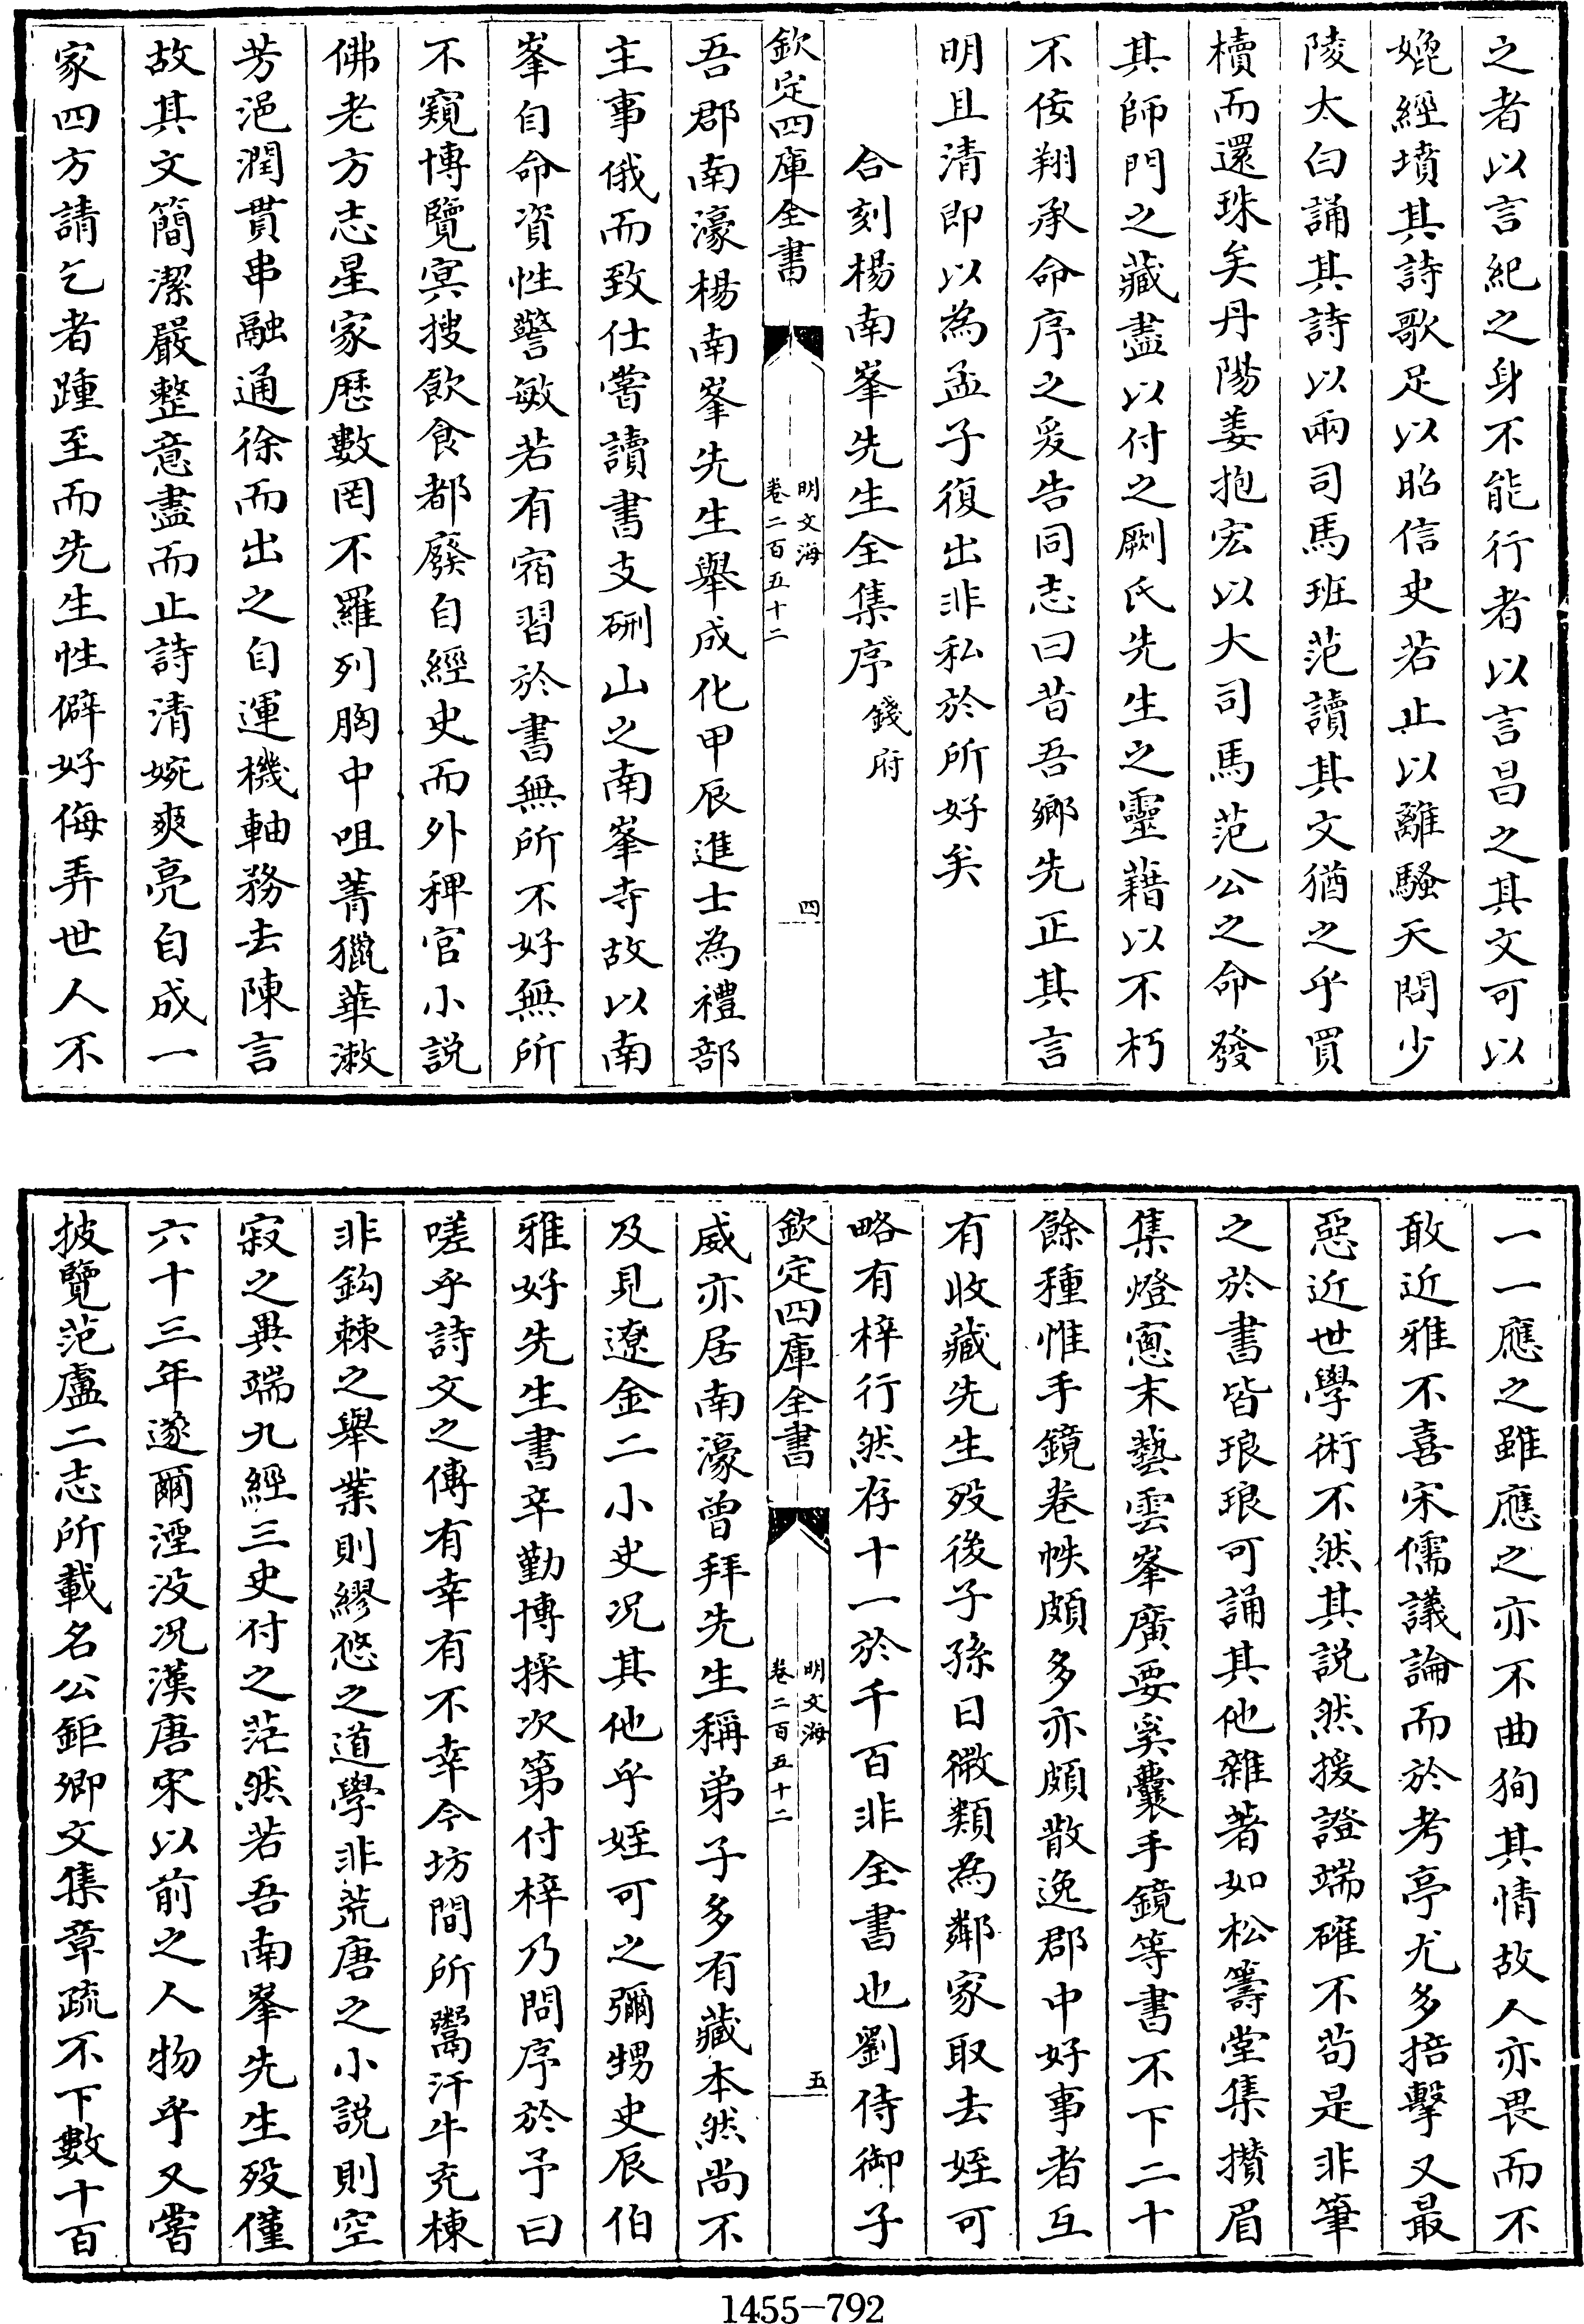 之者以言紀之身不能行者以言昌之其文可以
娩經墳其詩歌足以昭信史若止以離騷天問少
陵太白誦其詩以兩司馬班范讀其文猶之乎買
櫝而還珠矣丹陽姜抱宏以大司馬范公之命發
其師門之藏盡以付之劂氏先生之靈藉以不朽
不佞翔承命序之爰告同志曰昔吾鄉先正其言
明且清即以為孟子復出非私於所好矣
合刻楊南峯先生全集序 錢府
欽定四庫全書 明文海 卷二百五十二 四
吾郡南濠楊南峯先生舉成化甲辰進士為禮部
主事俄而致仕嘗讀書支硎山之南峯寺故以南
峯自命資性警敏若有宿習於書無所不好無所
不窺博覽冥搜飲食都廢自經史而外稗官小說
佛老方志星家歷數罔不羅列胸中咀菁獵華漱
芳浥潤貫串融通徐而出之自運機軸務去陳言
故其文簡潔嚴整意盡而止詩清婉爽亮自成一
家四方請乞者踵至而先生性僻好侮弄世人不
一一應之雖應之亦不曲狥其情故人亦畏而不
敢近雅不喜宋儒議論而於考亭尤多掊擊又最
惡近世學術不然其說然援證端確不茍是非筆
之於書皆琅琅可誦其他雜著如松籌堂集攢眉
集燈窻末藝雲峯廣要奚囊手鏡等書不下二十
餘種惟手鏡卷帙頗多亦頗散逸郡中好事者互
有收藏先生歿後子孫日微類為鄰家取去姪可
略有梓行然存十一於千百非全書也劉侍御子
欽定四庫全書 明文海 卷二百五十二 五
威亦居南濠曾拜先生稱弟子多有藏本然尚不
及見遼金二小史况其他乎姪可之彌甥史辰伯
雅好先生書辛勤博採次第付梓乃問序於予曰
嗟乎詩文之傳有幸有不幸今坊間所鬻汗牛充棟
非鈎棘之舉業則繆悠之道學非荒唐之小說則空
寂之異端九經三史付之茫然若吾南峯先生歿僅
六十三年遂爾湮没况漢唐宋以前之人物乎又嘗
披覽范盧二志所載名公鉅卿文集章疏不下數十百
1455-792